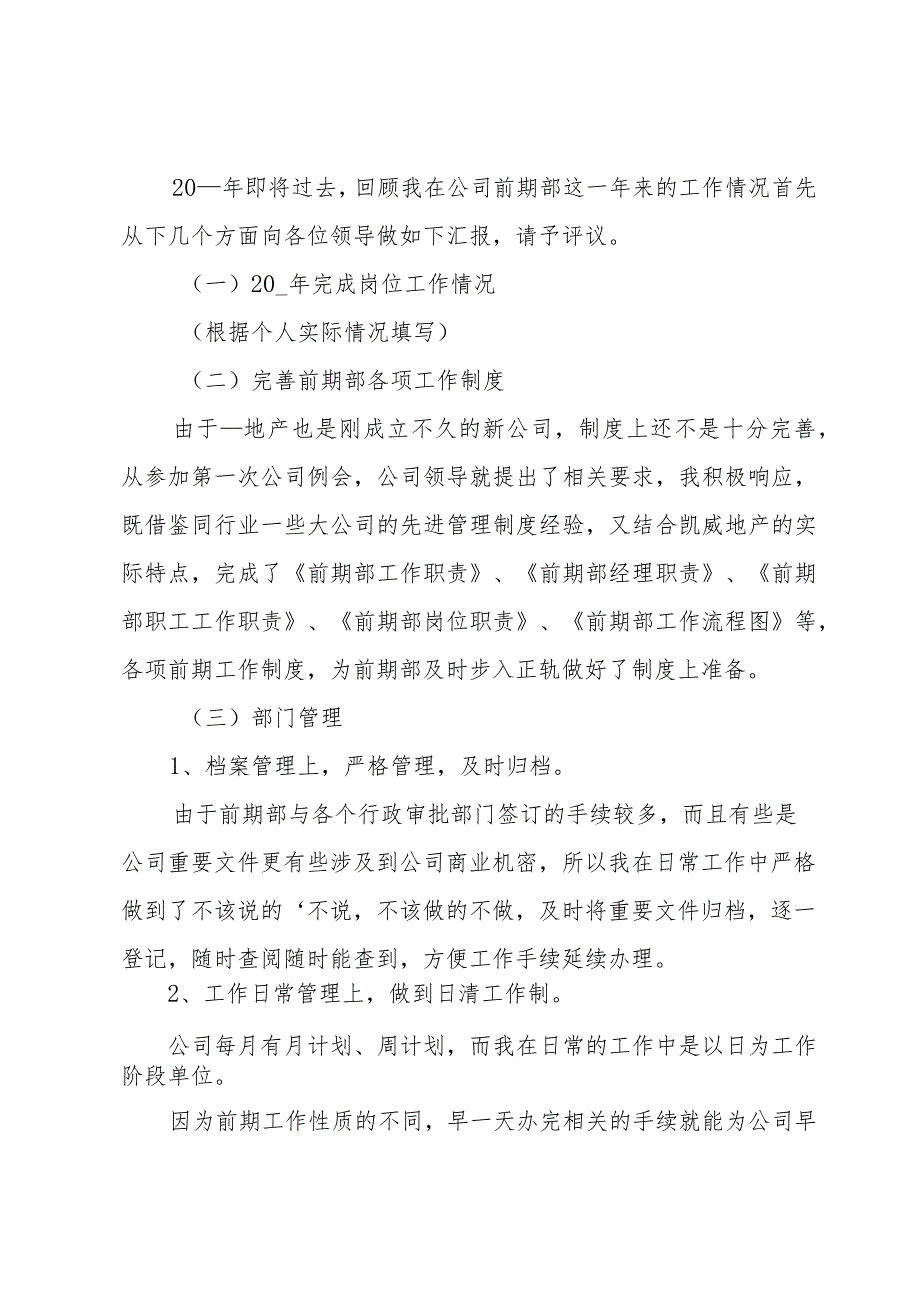 20—年即将过去，回顾我在公司前期部这一年来的工作情况首先
从下几个方面向各位领导做如下汇报，请予评议。
（一）20_年完成岗位工作情况
（根据个人实际情况填写）
（二）完善前期部各项工作制度
由于—地产也是刚成立不久的新公司，制度上还不是十分完善，
从参加第一次公司例会，公司领导就提出了相关要求，我积极响应，
既借鉴同行业一些大公司的先进管理制度经验，又结合凯威地产的实
际特点，完成了《前期部工作职责》、《前期部经理职责》、《前期
部职工工作职责》、《前期部岗位职责》、《前期部工作流程图》等，
各项前期工作制度，为前期部及时步入正轨做好了制度上准备。
（三）部门管理
1、档案管理上，严格管理，及时归档。
由于前期部与各个行政审批部门签订的手续较多，而且有些是
公司重要文件更有些涉及到公司商业机密，所以我在日常工作中严格
做到了不该说的‘不说，不该做的不做，及时将重要文件归档，逐一
登记，随时查阅随时能查到，方便工作手续延续办理。
2、工作日常管理上，做到日清工作制。
公司每月有月计划、周计划，而我在日常的工作中是以日为工作
阶段单位。
因为前期工作性质的不同，早一天办完相关的手续就能为公司早